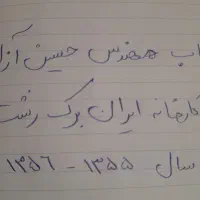 مهندس حسین
کارخانه ایران برک رشت
سال ۱۳۵۵ - ۱۳۵۶